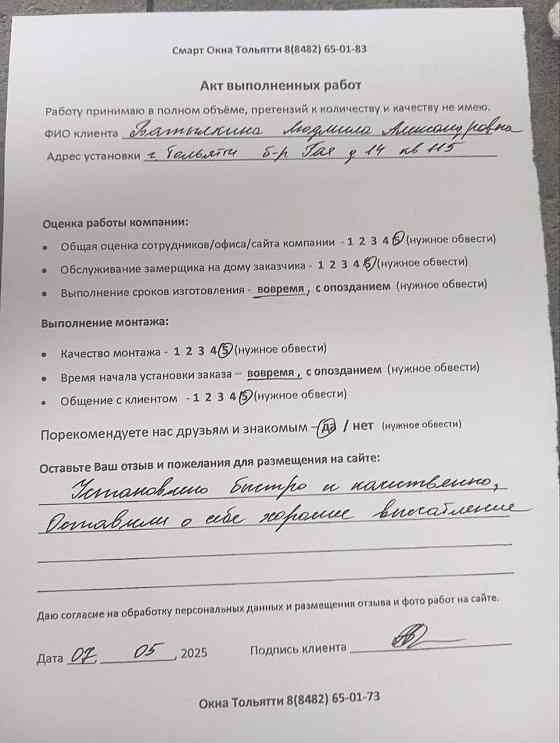 Смарт Окна Тольятти 8(8482) 65-01-83
Акт выполненных работ
Работу принимаю в полном объёме, претензий к количеству и качеству не имею.
ФИО клиента Батылкина Людмила Александровна
Адрес установки г. Тольятти б-р Гая д 14 кв 115
Оценка работы компании:
• Общая оценка сотрудников/офиса/сайта компании - 1 2 3 4 5 (нужное обвести)
• Обслуживание замерщика на дому заказчика - 1 2 3 4 5 (нужное обвести)
• Выполнение сроков изготовления - вовремя, с опозданием (нужное обвести)
Выполнение монтажа:
• Качество монтажа - 1 2 3 4 5 (нужное обвести)
• Время начала установки заказа – вовремя, с опозданием (нужное обвести)
• Общение с клиентом - 1 2 3 4 5 (нужное обвести)
Порекомендуете нас друзьям и знакомым – да / нет (нужное обвести)
Оставьте Ваш отзыв и пожелания для размещения на сайте:
Установлено быстро и качественно,
Оставили о себе хорошее впечатление
Даю согласие на обработку персональных данных и размещения отзыва и фото работ на сайте.
Дата 07. 05, 2025 Подпись клиента
Окна Тольятти 8(8482) 65-01-73